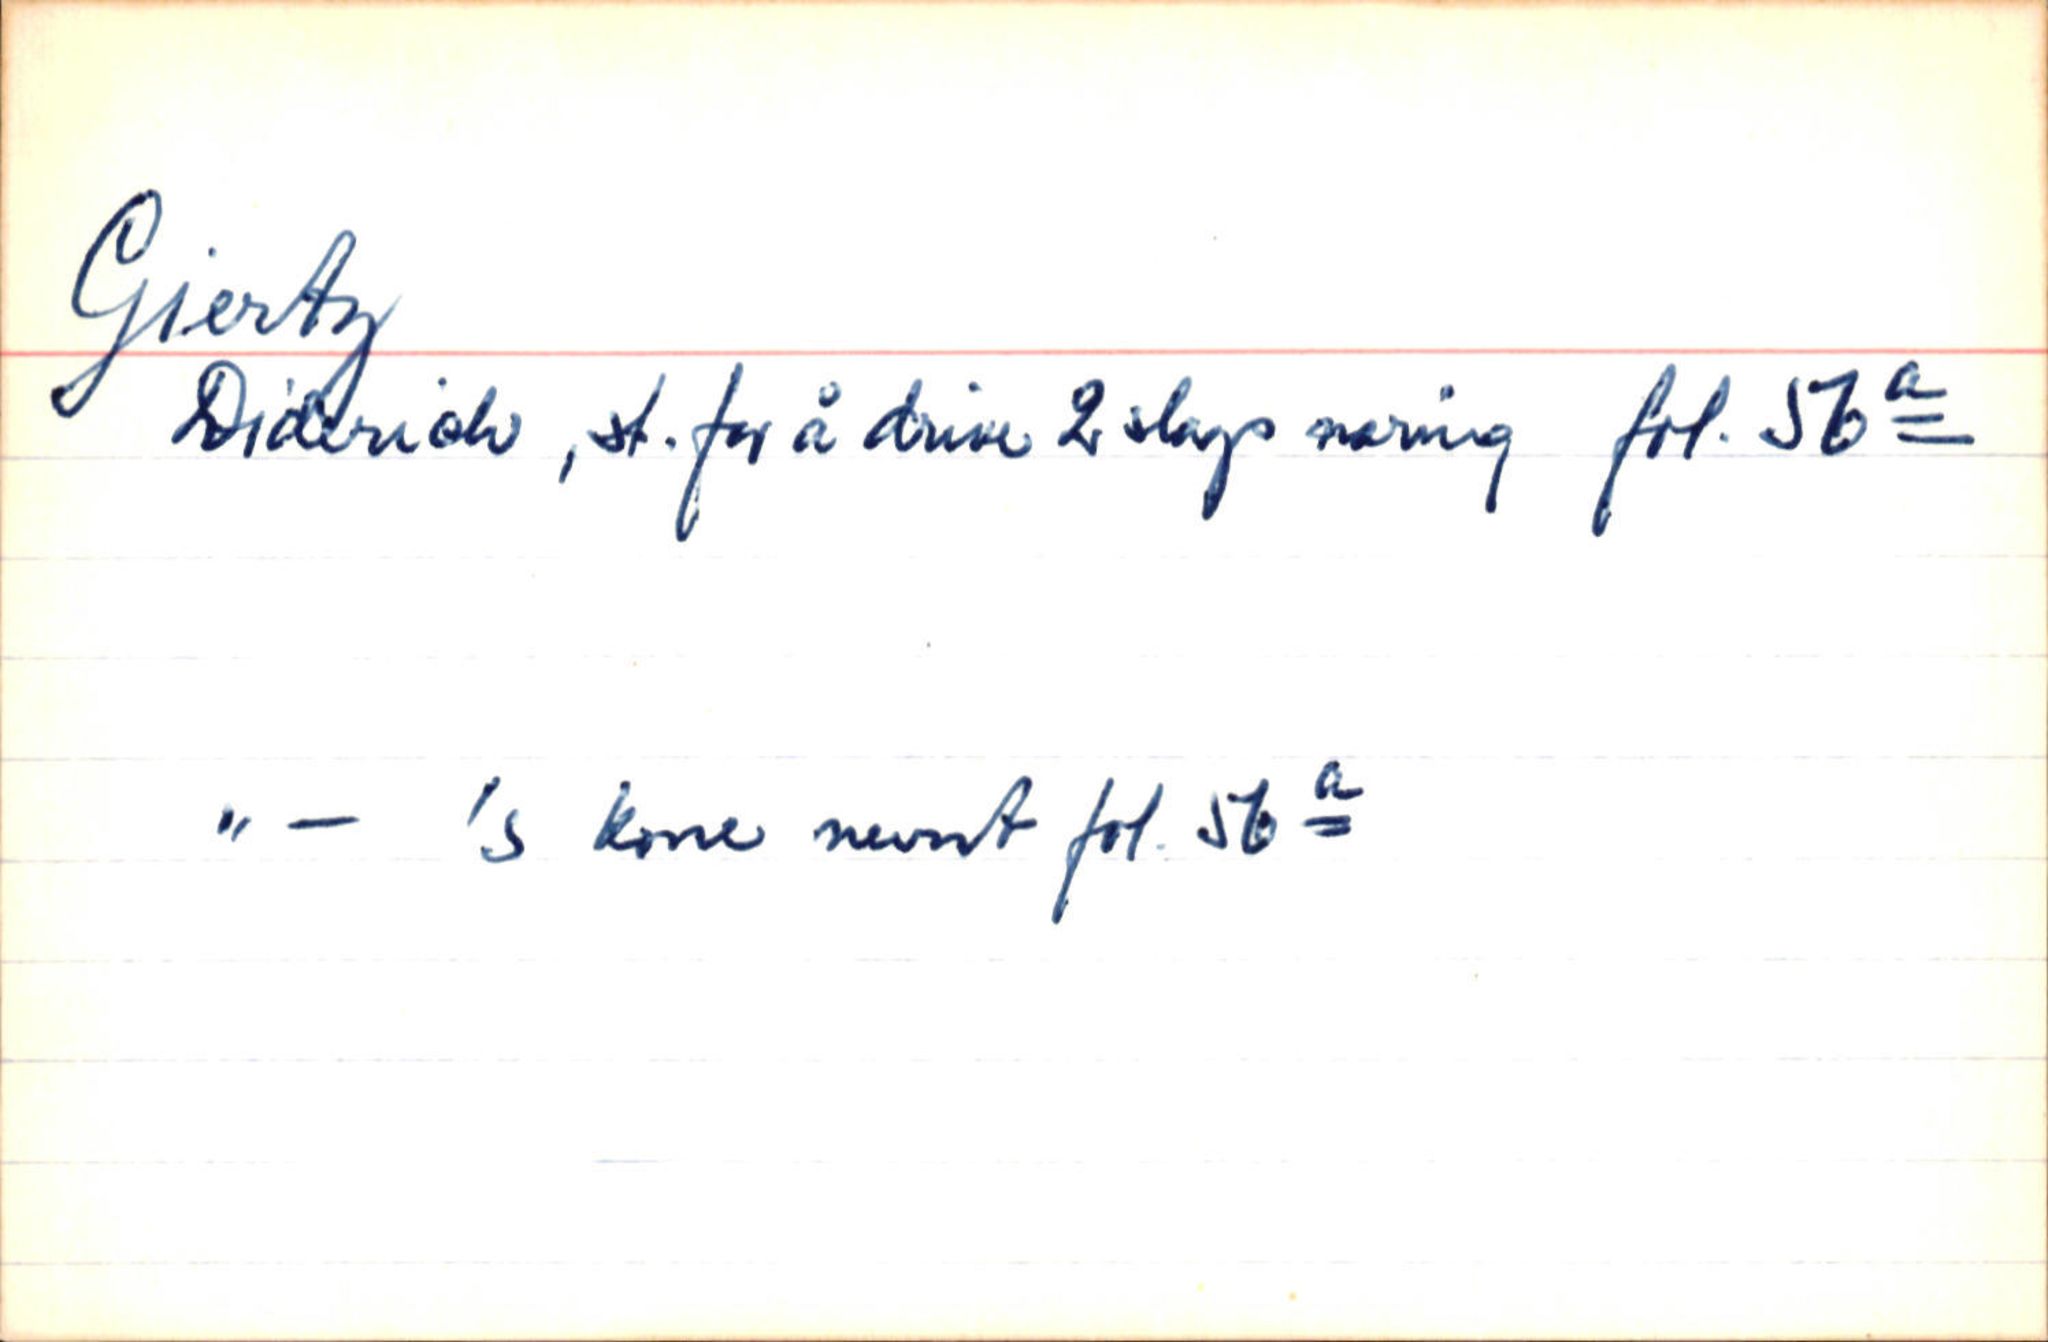 Giertz
Diderich, st. for å drive 2 slags næring fol. 56a
"— 's kone nevnt fol. 56a